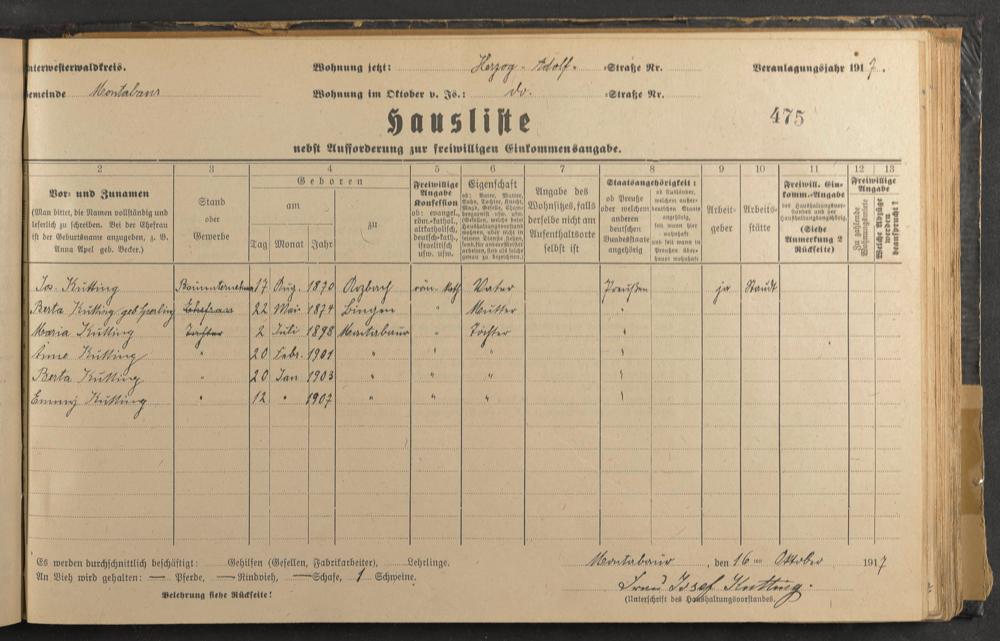 nterwesterwaldkreis. Wohnung jetzt: Herzog-Adolf- Straße Nr. Veranlagungsjahr 1917.
emeinde Montabaur Wohnung im Oktober v. Js.: do. Straße Nr.
475
Hausliste
nebst Aufforderung zur freiwilligen Einkommensangabe.
2 3 4 5 6 7 8 9 10 11 12 13
Vor- und Zunamen
(Man bittet, die Namen vollständig und leserlich zu schreiben. Bei der Ehefrau ist der Geburtsname anzugeben, z. B. Anna Apel geb. Becker.)
Stand oder Gewerbe
Geboren
am
Tag Monat Jahr
zu
Freiwillige Angabe Konfession
ob: evangel., röm.-kathol., altkatholisch, deutsch-kath., israelitisch usw. usw.
Eigenschaft
Angabe des Wohnsitzes, falls derselbe nicht am Aufenthaltsorte selbst ist
Staatsangehörigkeit:
ob Preuße oder welchem anderen deutschen Bundesstaate angehörig
Arbeitgeber
Arbeitsstätte
Freiwill. Einkomm.-Angabe
(Siehe Anmerkung 2 Rückseite)
Freiwillige Angabe
Welche Abzüge werden beansprucht?
Jos. Kutting Bauunternehmer 17 Aug. 1870 Arzbach röm. kath Vater Preußen ja Staudt
Berta Kutting geb. Ehefrau 22 Mai 1874 Bingen " Mutter "
Maria Kutting Tochter 2 Juli 1898 Montabaur " Töchter "
Anna Kutting " 20 Febr. 1901 " " " "
Berta Kutting " 20 Jan 1903 " " " "
Emmy Kutting " 12 " 1907 " " " "
Es werden durchschnittlich beschäftigt: Gehilfen (Gesellen, Fabrikarbeiter), Lehrlinge.
An Vieh wird gehalten: — Pferde, — Rindvieh, — Schafe, 1 Schweine.
Belehrung siehe Rückseite!
Montabaur, den 16ten Oktober 1917
Frau Josef Kutting.
(Unterschrift des Haushaltungsvorstandes.)